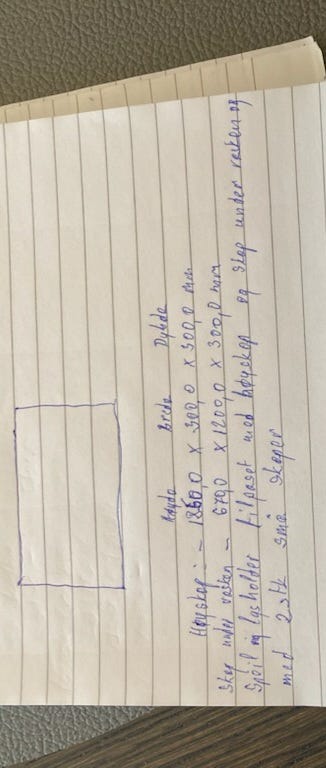 Høyde Breda Dybde
Høyskap - 1850,0 x 300,0 x 300,0 mm
Skap under vasken - 670,0 x 1200,0 x 300,0 mm
Speil og lysholder tilpaset med høyskap og skap under vasken og
med 2 stk små skaper